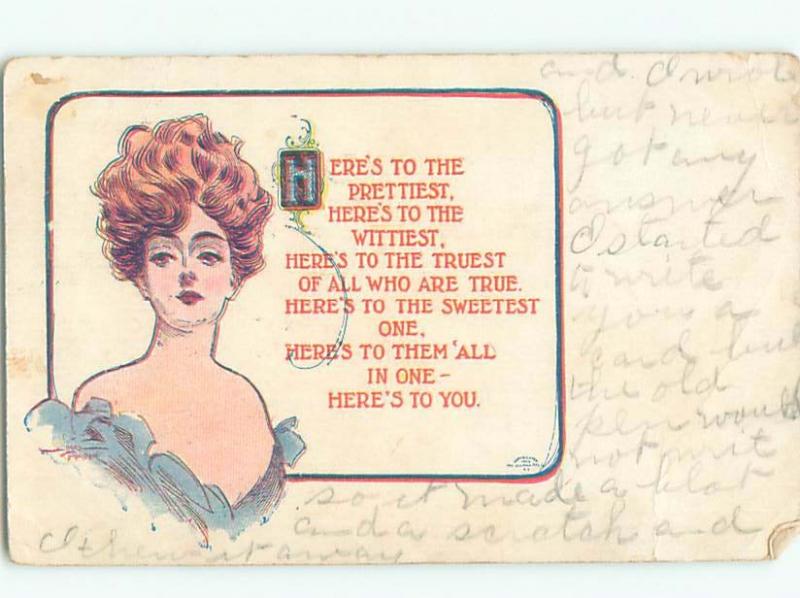 HERE'S TO THE
PRETTIEST,
HERE'S TO THE
WITTIEST,
HERE'S TO THE TRUEST
OF ALL WHO ARE TRUE.
HERE'S TO THE SWEETEST
ONE,
HERE'S TO THEM 'ALL
IN ONE-
HERE'S TO YOU.
and. I wrote
but never
got any
answer
I started
to write
you a
card but
the old
pen would
not writ
so it made a blot
and a scratch and
I threw it away